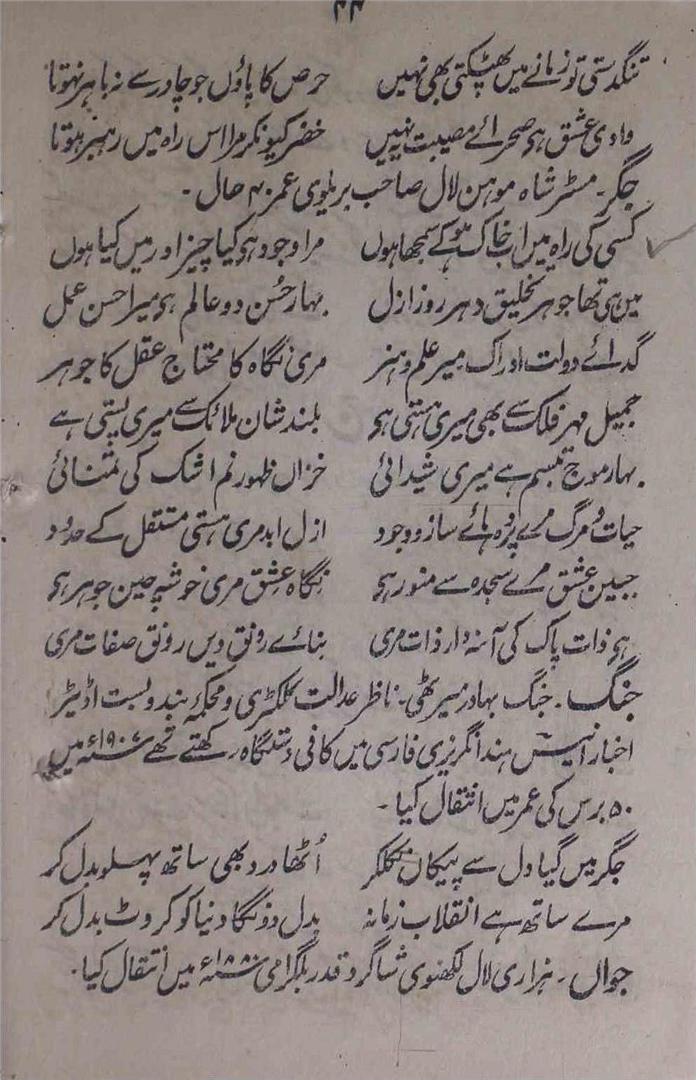 ۴۴
تنگدستی تو زمانے میں پھٹکتی بھی نہیں حرص کا پاؤں جو چادر سے نہ باہر ہوتا
وادی عشق ہو صحرائے مصیبت یہ نہیں خضر کیونکر مرا اس راہ میں رہبر ہوتا
جگر۔ مسٹر شاہ موہن لال صاحب بریلوی عمر ۴۰ حال۔
کسی کی راہ میں اب خاک ہو کے سمجھا ہوں مرا وجود ہو کیا چیز اور میں کیا ہوں
میں ہی تھا جوہر تخلیق دہر روز ازل بہار حُسن دو عالم ہو میرا حسن عمل
گدائے دولت ادراک میر علم و ہنر مری نگاہ کا محتاج عقل کا جوہر
جمیل مہر فلک سے بھی میری ہستی ہو بلند شان ملائک سے میری پستی ہے
بہار موج تبسم ہے میری شیدائی خزاں ظہور نم اشک کی تمنائی
حیات و مرگ مرے پردہ ہائے ساز وجود ازل ابد مری ہستی مستقل کے حدود
جبین عشق مرے سجدہ سے منور ہو نگاہ عشق مری خوشہ چین جوہر ہو
ہو ذات پاک کی آئنہ دار ذات مری بنائے رونق دیں رونق صفات مری
جنگ۔ جنگ بہادر میرٹھی۔ ناظر عدالت کلکٹری و محکمہ بندوبست اڈیٹر
اخبار انیس ہند انگریزی فارسی میں کافی دستگاہ رکھتے تھے ۱۹۰۷ء میں
۵۰ برس کی عمر میں انتقال کیا۔
جگر میں گیا دل سے پیکاں نکلکر اُٹھا درد بھی ساتھ پہلو بدل کر
مرے ساتھ ہے انقلاب زمانہ بدل دونگا دنیا کو کروٹ بدل کر
جواں۔ ہزاری لال لکھنوی شاگرد قدر بلگرامی ۱۸۸۰ء میں انتقال کیا۔